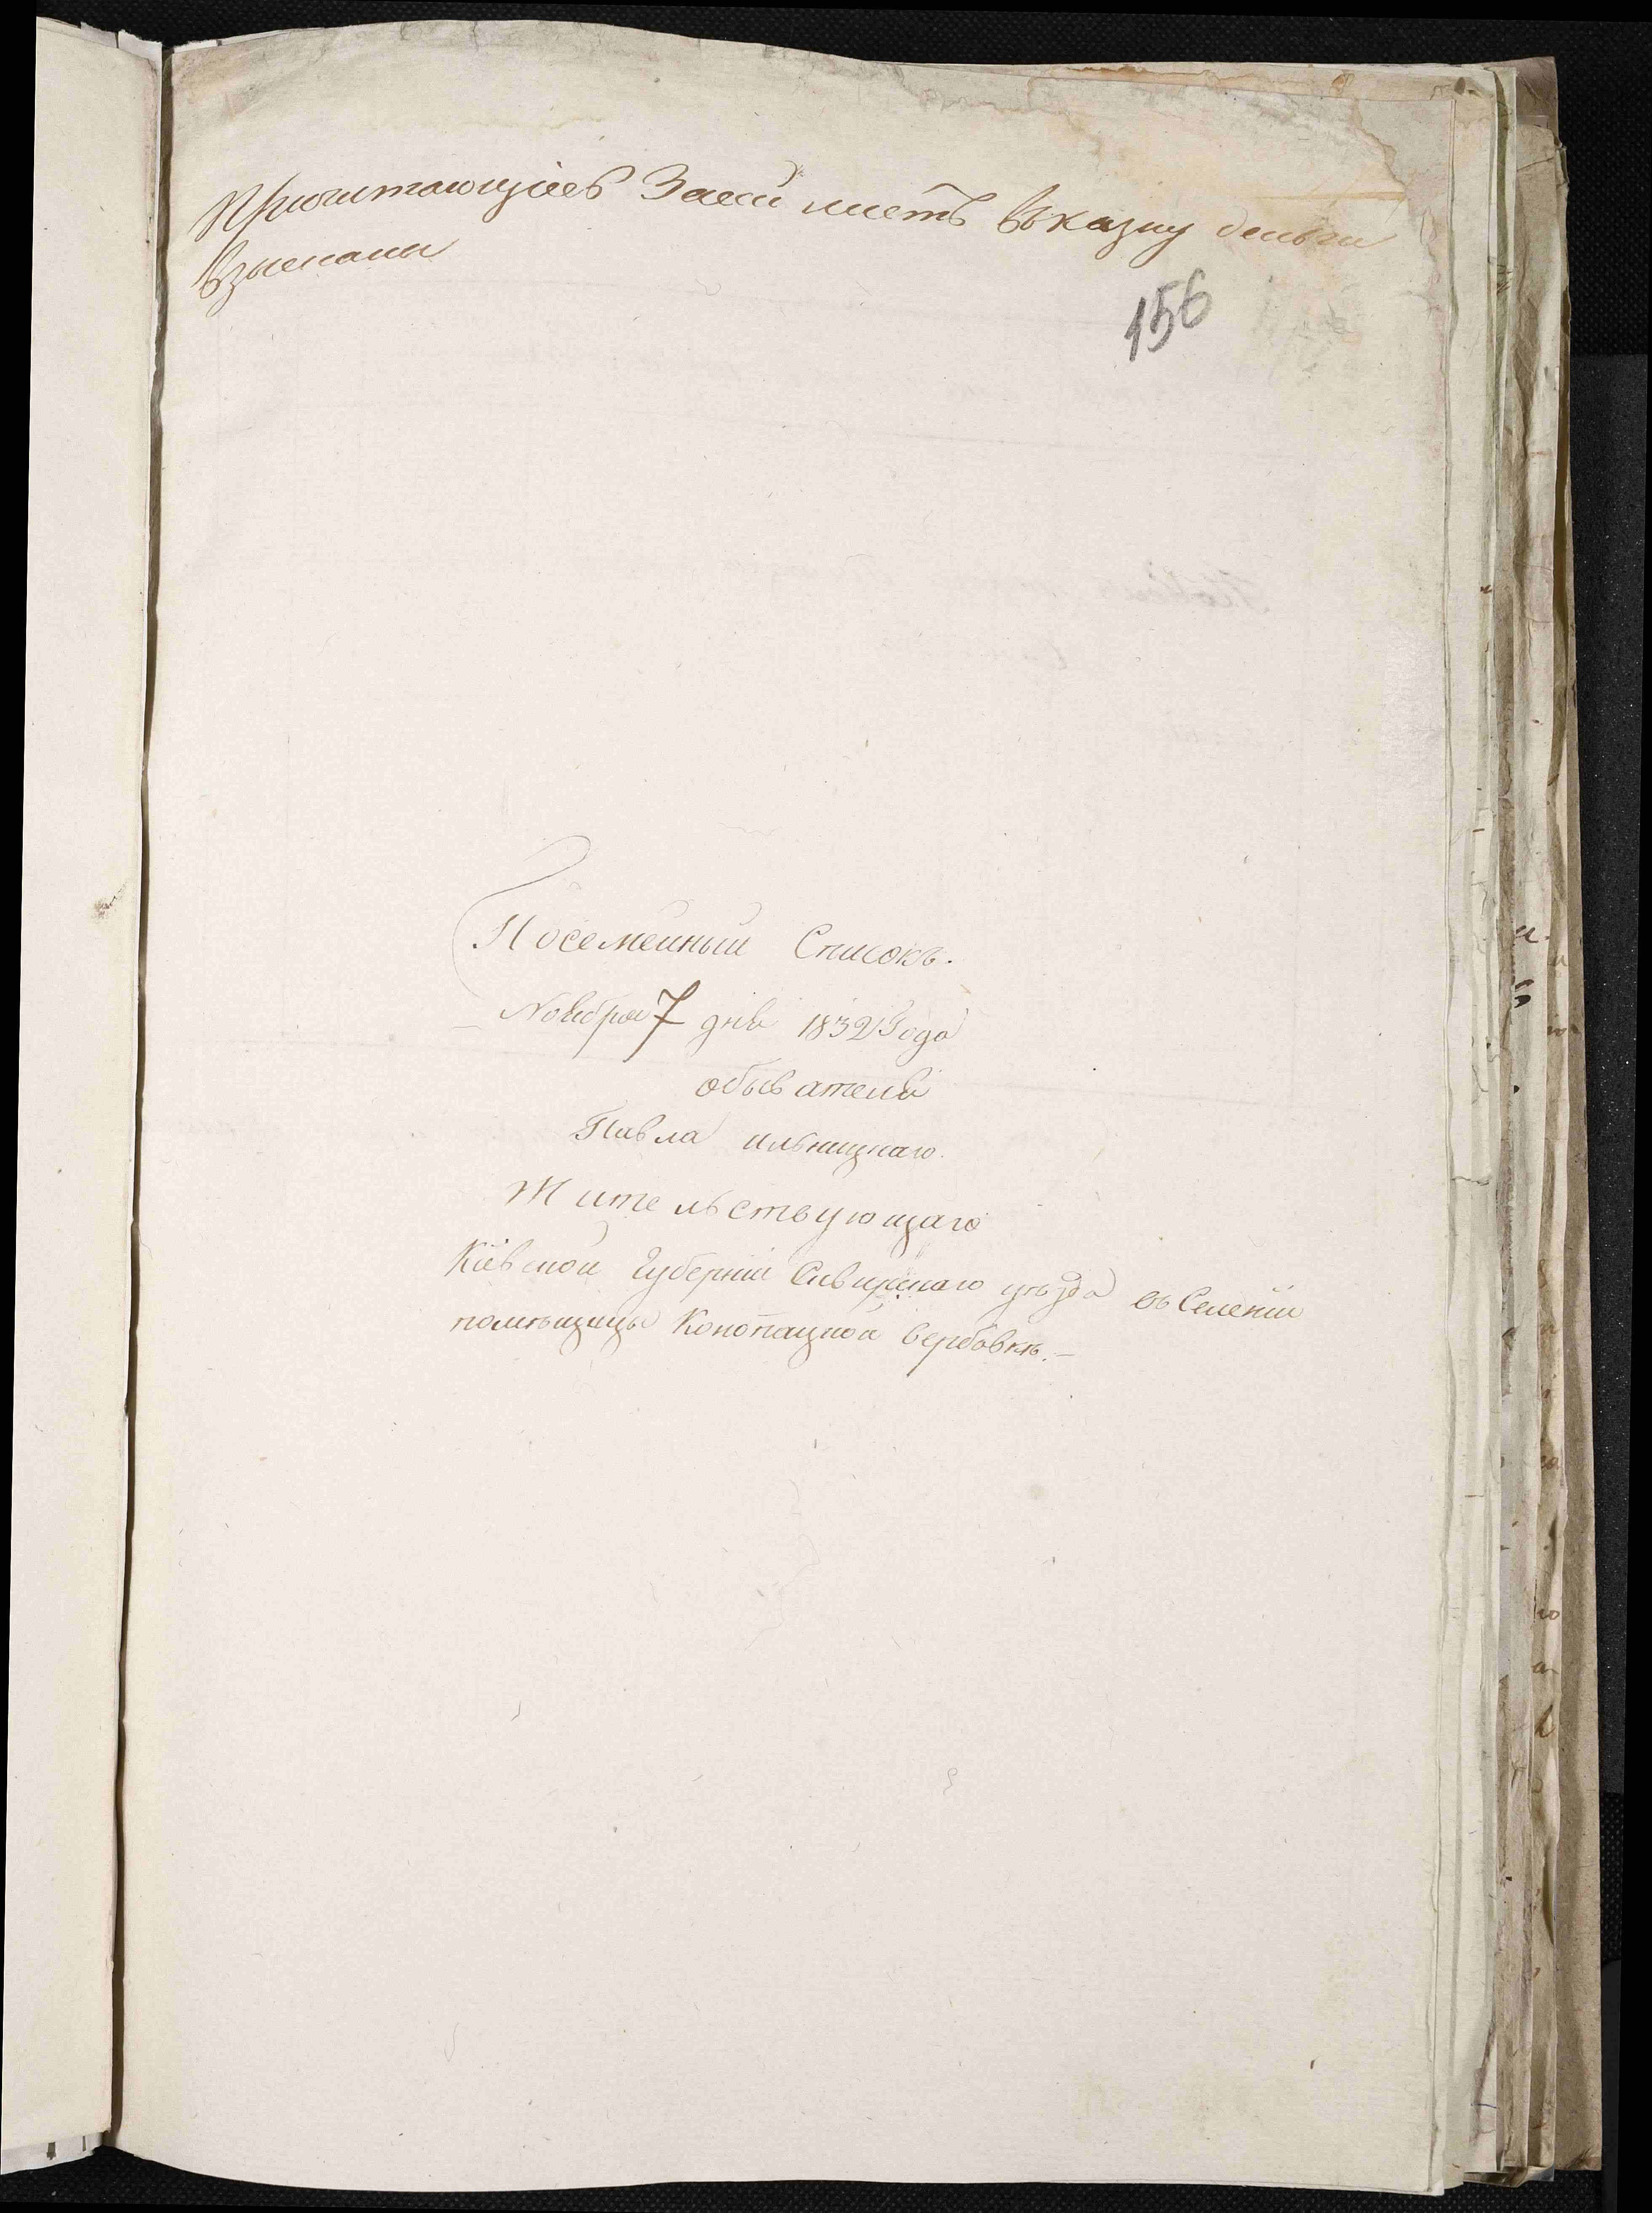 Причитающіесь За сей листъ въ казну деньги
взысканы
156
Посемейный Списокъ.
Ноября 7 дня 1832 Года
обывателя
Павла ильницкаго.
Жительствующаго
Кіевской Губерніи Сквирскаго уѣзда въ Селеніи
помѣщицы Конопацкой вербовкѣ.—